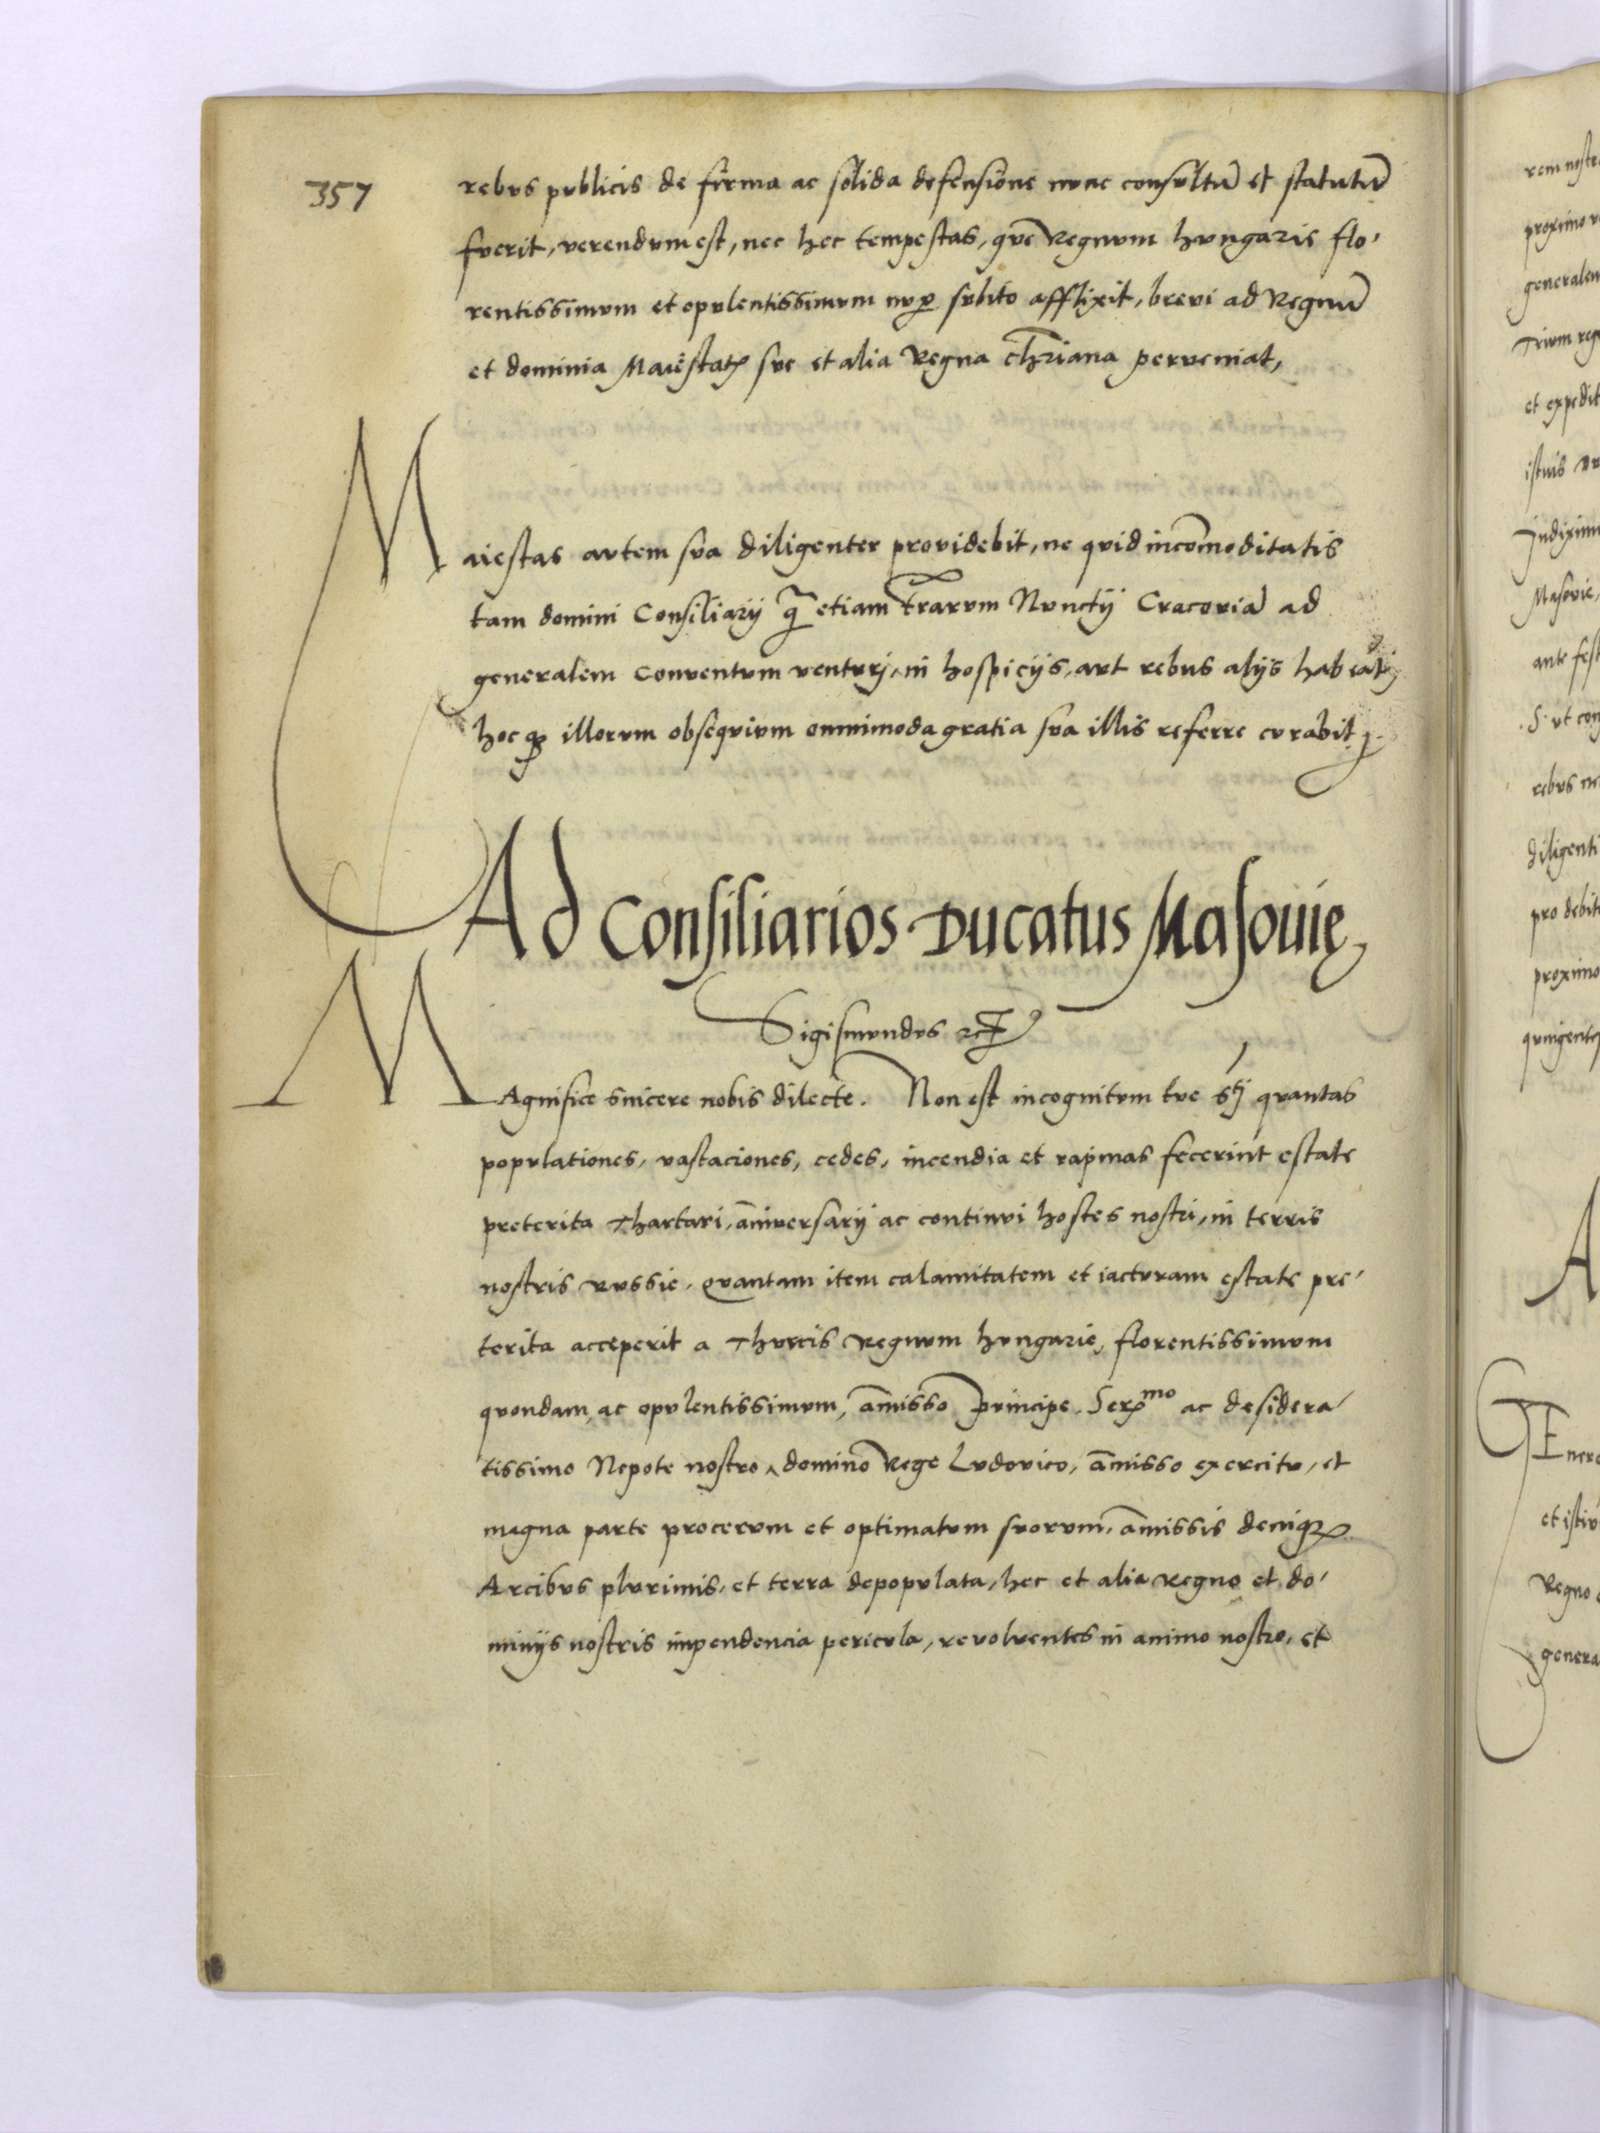 357
rebus publicis de firma ac solida defensione nunc consultū et statutū
fuerit, verendum est, nec hec tempestas, quē Regnum hungaris flo,
rentissimum et opulentissimum nup̄ subito afflixit, brevi ad Regnū
et dominia Maiestatꝭ sue et alia Regna chr̄iana perveniat,
Maiestas autem sua diligenter providebit, ne quid incōmoditatis
tam domini Consiliarij q̄ etiam tr̄arum Nunctij Cracoviā ad
generalem Conventum venturi, in hospicijs, aut rebus alijs habeāt,
hocq; illorum obsequium omnimoda gratia sua illis referre curabit
Ad Consiliarios Ducatus Masovię,
Sigismundus
MAgnifice sincere nobis dilecte. Non est incognitum tue Stj quantas
populationes, vastaciones, cedes, incendia et rapinas fecerint estate
preterita Thartari, āniversarij ac continui hostes nostri, in terris
nostris Russie. Quantam item calamitatem et iacturam estate pre,
terita acceperit a Thurcis Regnum hungarie, florentissimum
quondam, ac opulentissimum, āmisso principe Serᵐᵒ ac desidera,
tissimo Nepote nostro, domino Rege Ludovico, āmisso exercitu, et
magna parte procerum et optimatum suorum, āmissis deniq;
Arcibus plurimis, et terra depopulata, hec et alia Regno et do,
minijs nostris inpendencia pericula, revolventes in animo nostro, et
rem nostr
proximo
generalem
Trium reg
et expedit
istuis
Indixim
Masovie,
ante fest
S. ut con
rebus
diligenti
pro debit
proximo
quingent
A
GEnero
et istiu
Regno
genera